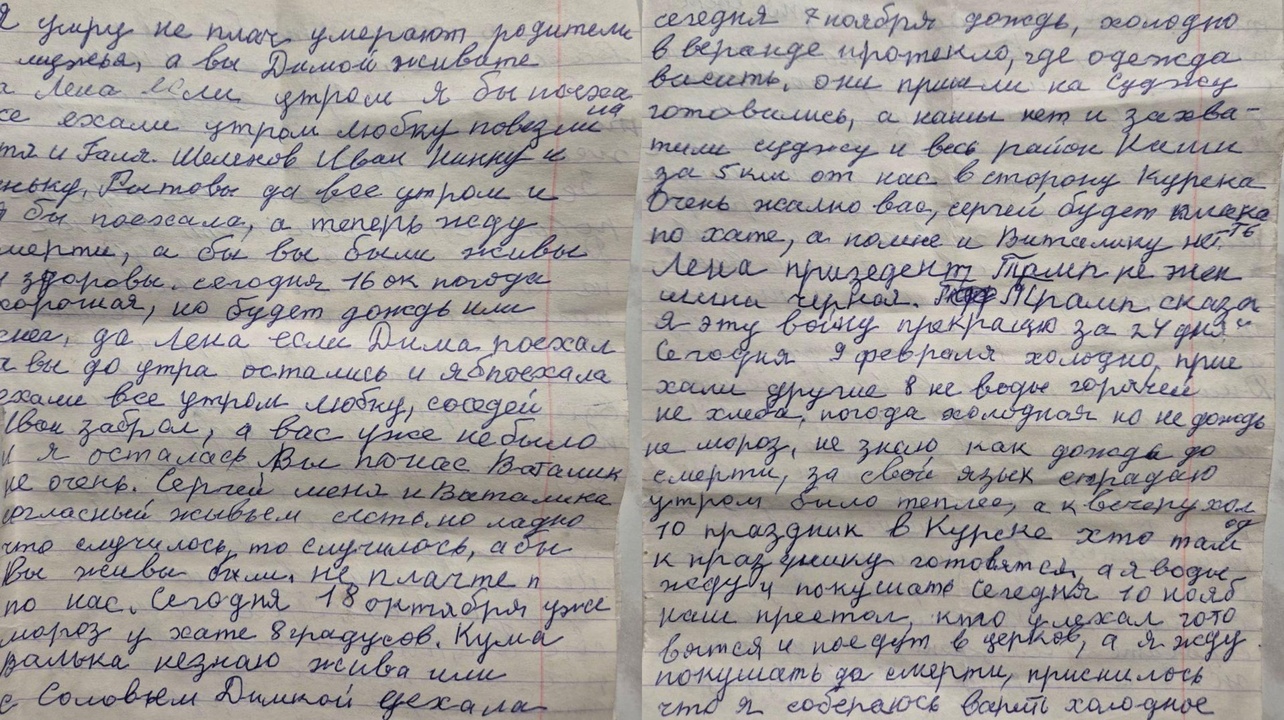 я умру не плач умерают родители
мужья, а вы Димой живите
а Лена если утром я бы поеха
ла
се ехали утром Любку повезли
тя и Галя. Шеленков Иван Нинку и
ньку, Ростовы да все утром и
я бы поехала, а теперь жду
смерти, а бы вы были живы
и здоровы. сегодня 16 ок погода
хорошая, но будет дождь или
снег, да Лена если Дима поехал
а вы до утра остались и я б поехала
ехали все утром Любку, соседей
Иван забрал, а вас уже небыло
и я осталась Вы понас Ваталик
не очень. Сергей меня и Виталика
согласный жывьем сьесть, но ладно
что случилось, то случилось, абы
Вы живы были. не плачте п
по нас. Сегодня 18 октября уже
мороз у хате 8 градусов. Кума
Валька незнаю жива или
с Соловьем Димкой уехала
сегодня 7 ноября дождь, холодно
в веранде протекло, где одежда
висить. они пришли на Суджу
готовились, а нашы нет и захва-
тили суджу и весь район Наши
за 5 км от нас в сторону Курска
Очень жално вас, сергей будет плака
ть
по хате, а помне и Виталику нет.
Лена призедент Трамп не жен
шина черная. Трамп сказа
я эту войну прекращю за 24 дня"
Сегодня 9 февраля холодно, прие
хали другие 8 не воды горячей
не хлеба, погода холодная но не дождь
не мороз, не знаю как дождь до
смерти, за свой язык страдаю
утром было теплее, а к вечеру хол
од
10 праздник в Курске хто там
к празднику готовятся, а я воды
жду и покушать сегодня 10 нояб
наш престол, кто уехал гото
вятся и поедут в церков, а я жду
покушать до смерти, приснилось
что я собераюсь варить холодное